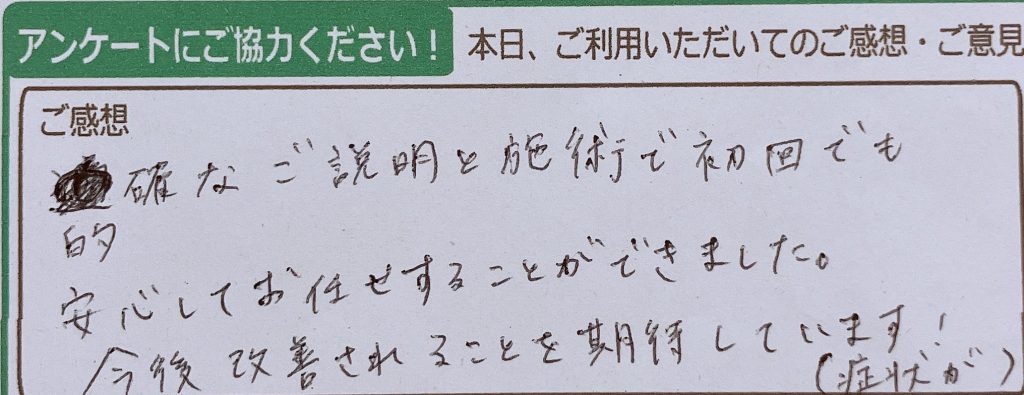 アンケートにご協力ください! 本日、ご利用いただいてのご感想・ご意見
ご感想
確なご説明と施術で初回でも
的
安心してお任せすることができました。
今後改善されることを期待しています!
(症状が)